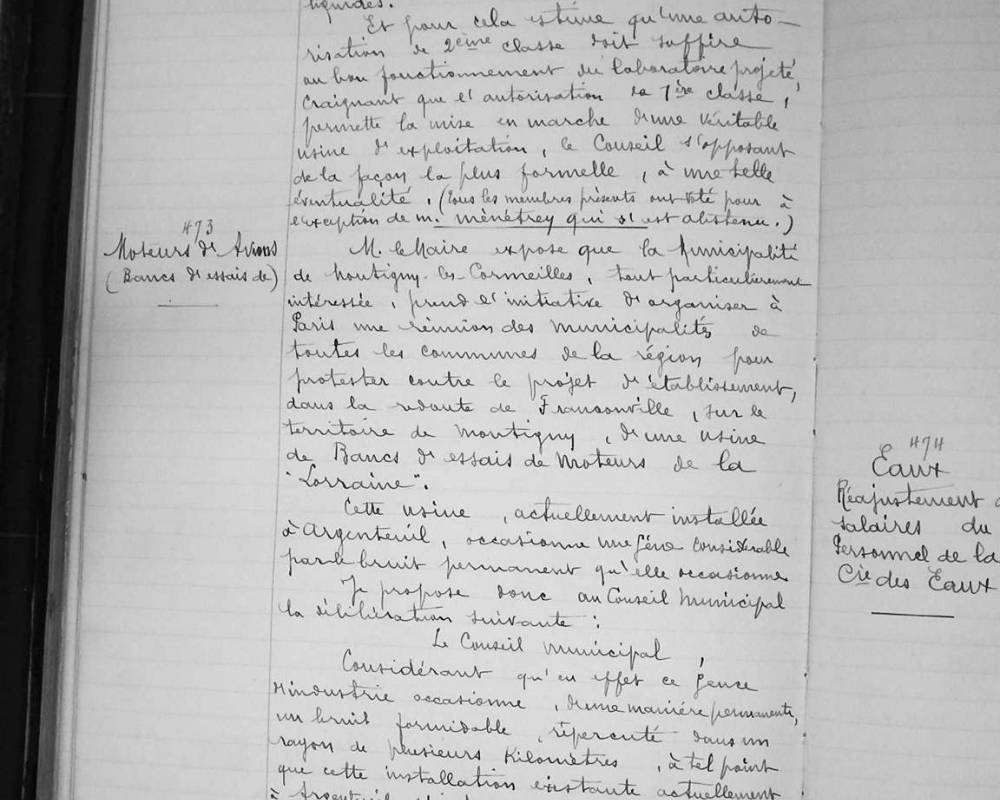 liquides.
Et pour cela estime qu'une auto-
risation de 2eme classe doit suffire
au bon fonctionnement du laboratoire projeté,
craignant que l'autorisation de 1ère classe,
permette la mise en marche d'une véritable
usine d'exploitation, le Conseil s'opposant
de la façon la plus formelle, à une telle
éventualité. (Tous les membres présents ont voté pour à
l'exception de M. Ménétrey qui s'est abstenu.)
473
Moteurs d'Avions
(Bancs d'essais de)
M. le Maire expose que la Municipalité
de Montigny-les-Cormeilles, tout particulièrement
intéressée, prend l'initiative d'organiser à
Paris une réunion des Municipalités de
toutes les communes de la région pour
protester contre le projet d'établissement,
dans la redoute de Franconville, sur le
territoire de Montigny, d'une usine
de Bancs d'essais de Moteurs de la
"Lorraine".
Cette usine, actuellement installée
à Argenteuil, occasionne une gêne considérable
par le bruit permanent qu'elle occasionne
Je propose donc au Conseil Municipal
la délibération suivante :
Le Conseil Municipal,
Considérant qu'en effet ce genre
d'industrie occasionne, d'une manière permanente,
un bruit formidable, répercuté dans un
rayon de plusieurs Kilomètres, à tel point
que cette installation existante actuellement
à Argenteuil
474
Eaux
Réajustement
salaires du
Personnel de la
Cie des Eaux